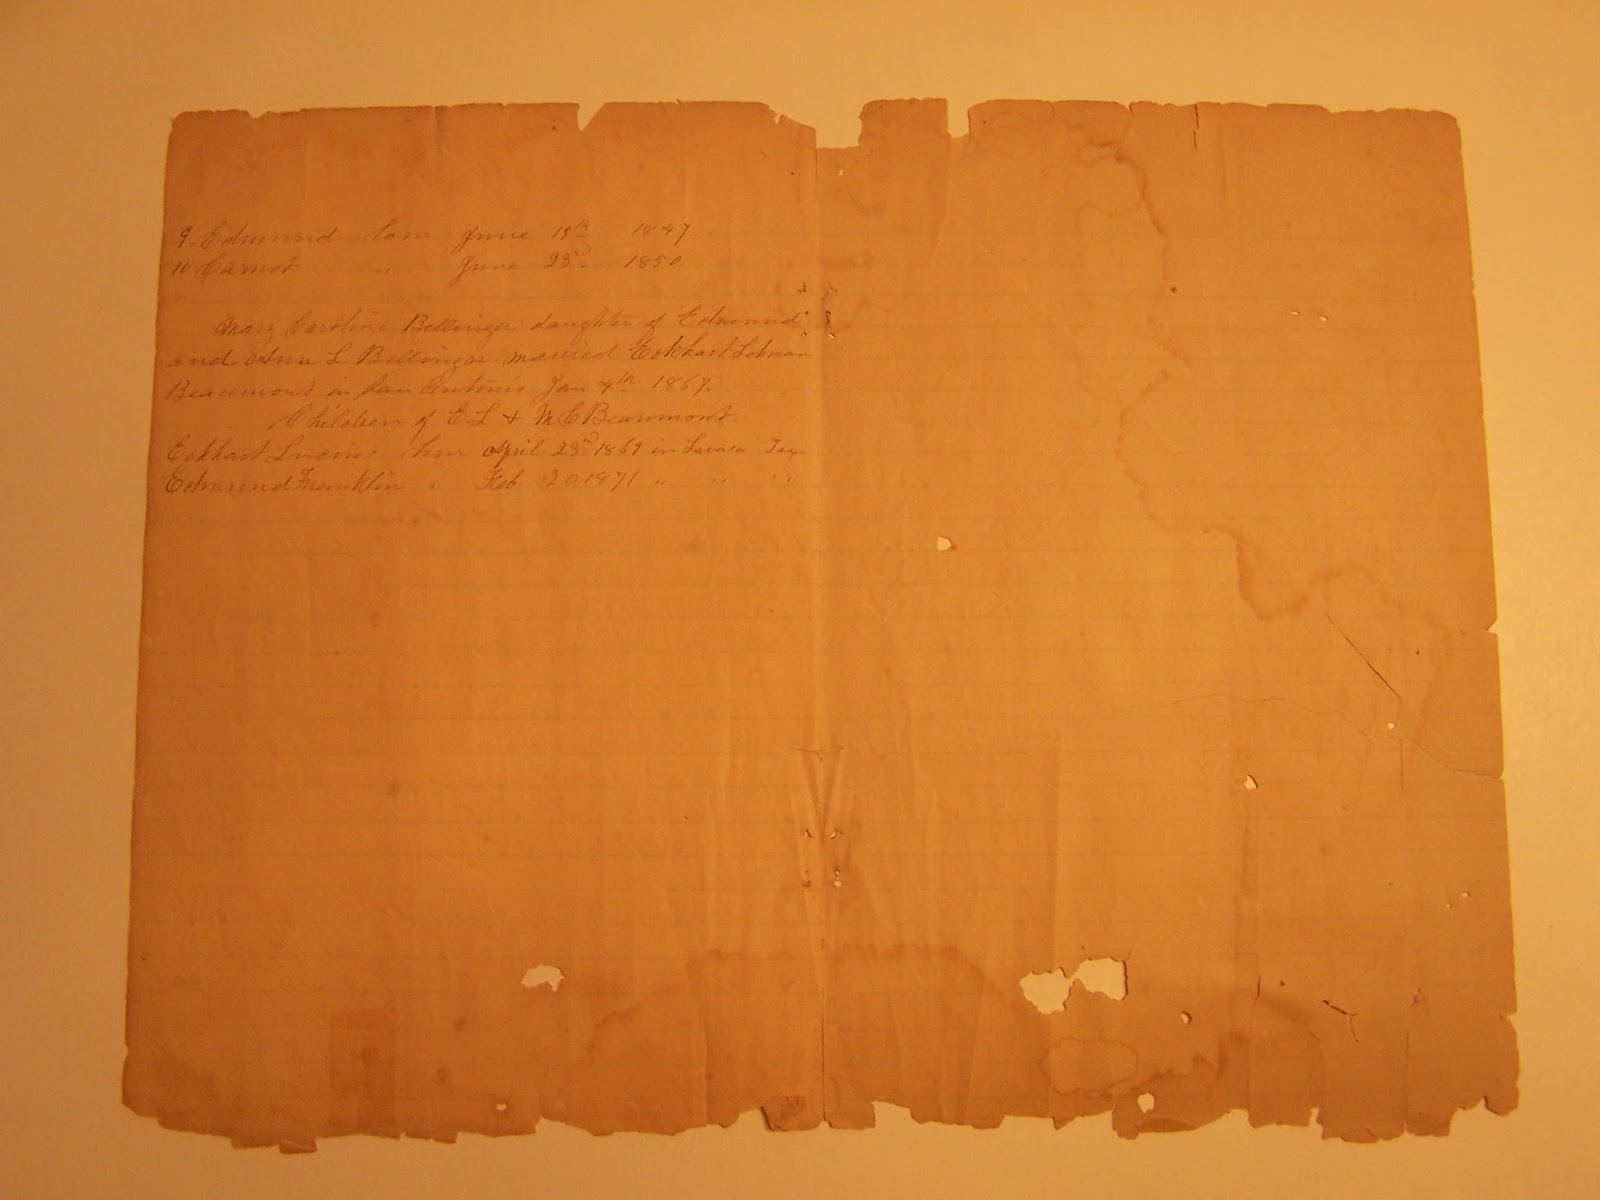 9 Edmund born June 19th 1847
10 Carnot " June 23rd 1850
Mary Caroline Bellinger daughter of Edmund
and Ann L Bellinger married Eckhart Lehman
Beaumont in San Antonio Jan 4th 1867.
Children of E L & M C Beaumont
Eckhart Lucius born April 23rd 1869 in Lavaca Tex
Edmund Franklin " Feb 20 1871 " " "